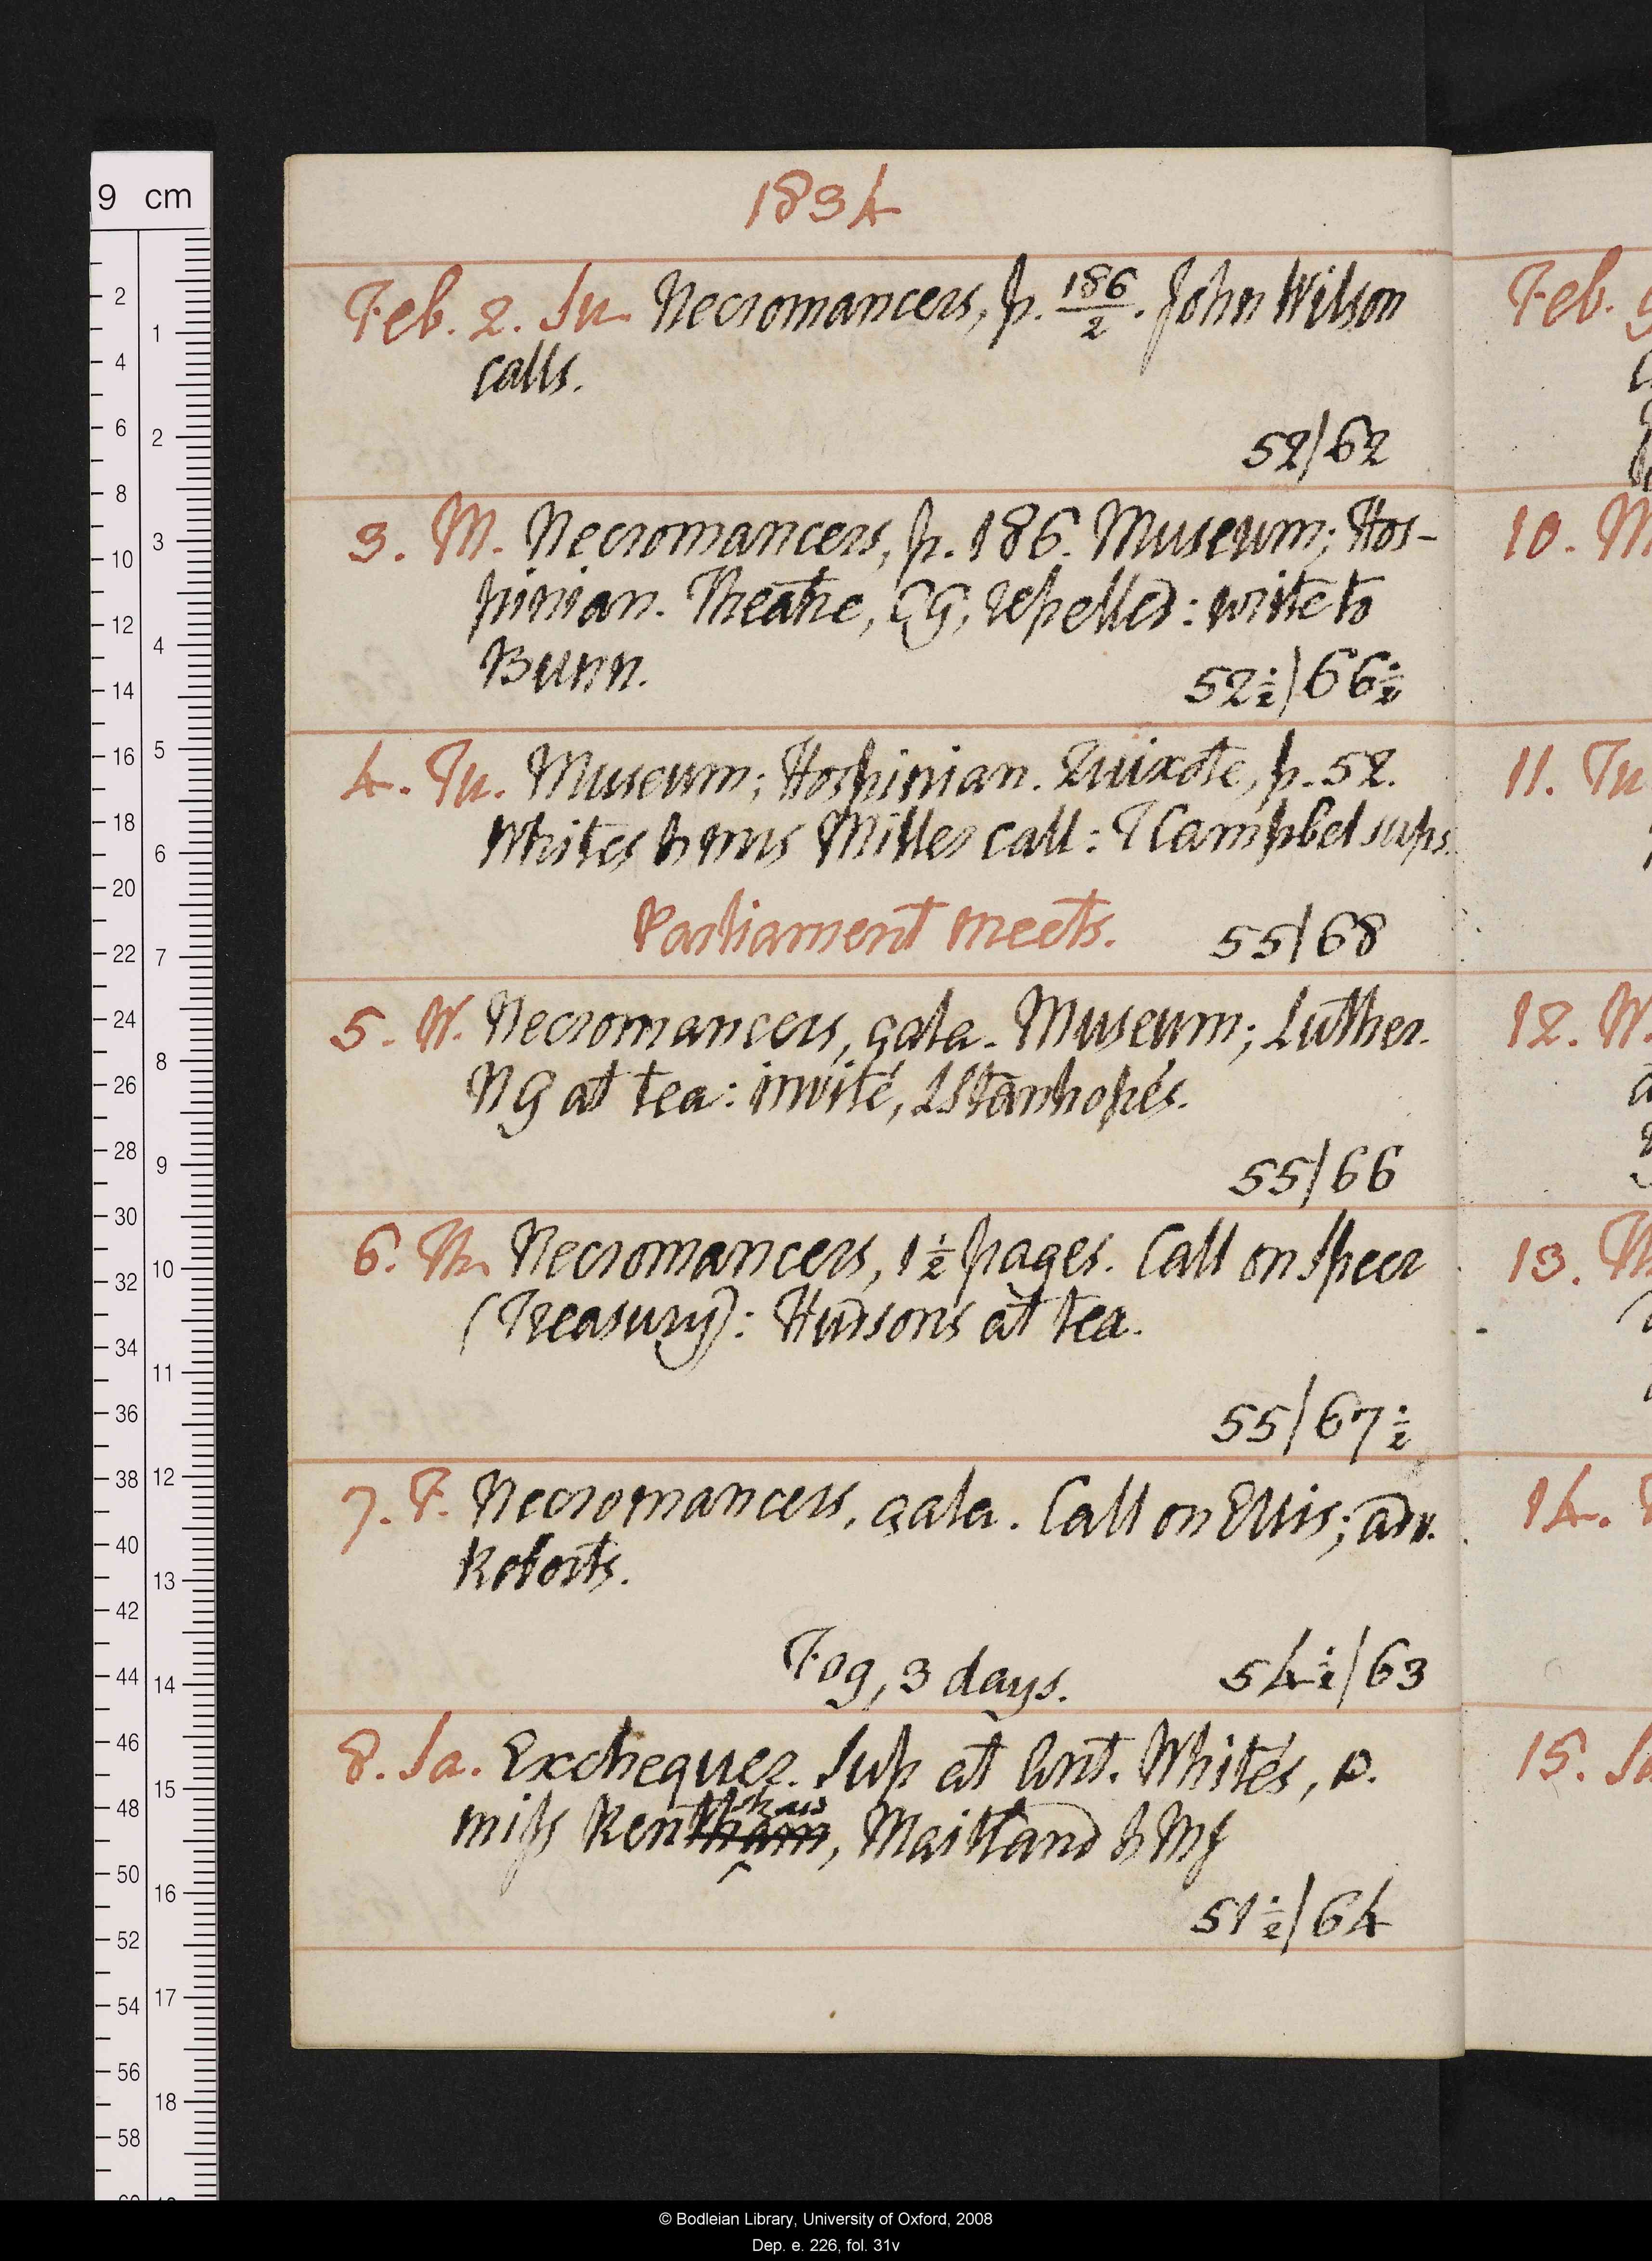 1834
Feb. 2. Su. Necromancers, p. 186/2. John Wilson
calls.
52/62
3. M. Necromancers, p. 186. Museum; Hos-
pinian. Theatre, CG, repelled: write to
Bunn.
52½/66½
4. Tu. Museum; Hospinian. Quixote, p. 52.
Whites & mrs Miller call: T Campbel sups.
Parliament meets.
55/68
5. W. Necromancers, gala. Museum; Luther.
NG at tea: invité, L Stanhope's.
55/66
6. Th. Necromancers, 1½ pages. Call on Speer
(Treasury): Hudson's at tea.
55/67½
7. F. Necromancers, gala. Call on Ellis; adv.
Roberts.
Fog, 3 days.
54½/63
8. Sa. Exchequer. Sup at Ant. White's,
miss Kent, Maitland & MJ
51½/64
Feb. 9
10. M
11. Tu
12. W.
13. Th
14.
15. Sa
9 cm
2
4
6
8
10
12
14
16
18
20
22
24
26
28
30
32
34
36
38
40
42
44
46
48
50
52
54
56
58
1
2
3
4
5
6
7
8
9
10
11
12
13
14
15
16
17
18
© Bodleian Library, University of Oxford, 2008
Dep. e. 226, fol. 31v